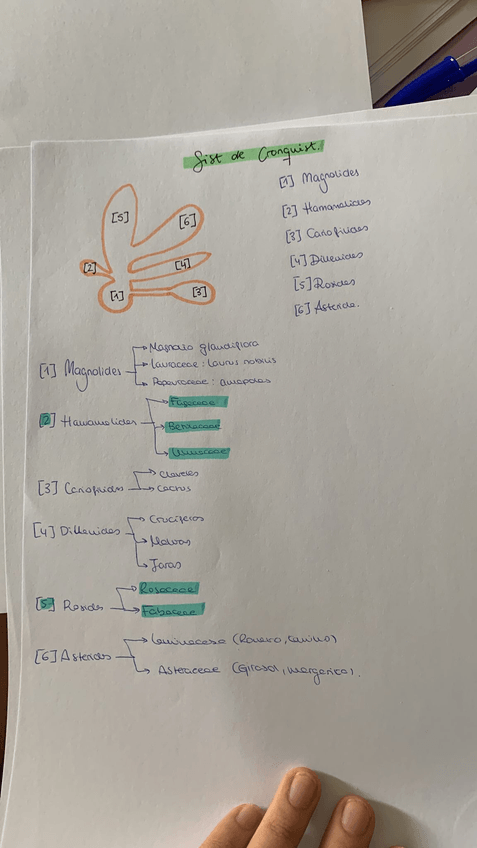 Sist de Cronquist.
[1] Magnolides
[2] Hamamelides
[3] Cariofilides
[4] Dillenides
[5] Rosides
[6] Asteride.
[5]
[6]
[2]
[4]
[1]
[3]
[1] Magnolides
Magnolio glandiflora
Lauraceae: Laurus nobilis
Papaveraceae: amapolas
[2] Hamamelides
Fagaceae
Betulaceae
Ulmaceae
[3] Cariofilides
Claveles
Cactus
[4] Dillenides
Crucíferas
Malvas
Jaras
[5] Rosides
Rosaceae
Fabaceae
[6] Asterides
Laminaceae (Romero,
Asteraceae (Girasol, margarita).